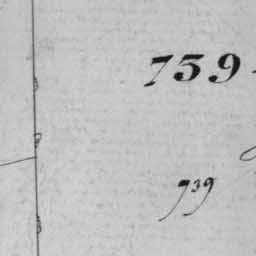 739
739